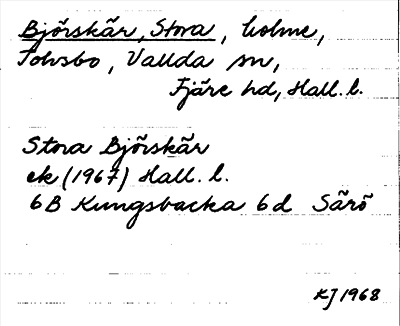 Björskär, Stora, holme,
Tolvsbo, Vallda sn,
Fjäre hd, Hall. l.
Stora Björskär
ek (1967) Hall. l.
6B Kungsbacka 6d Särö
KJ 1968